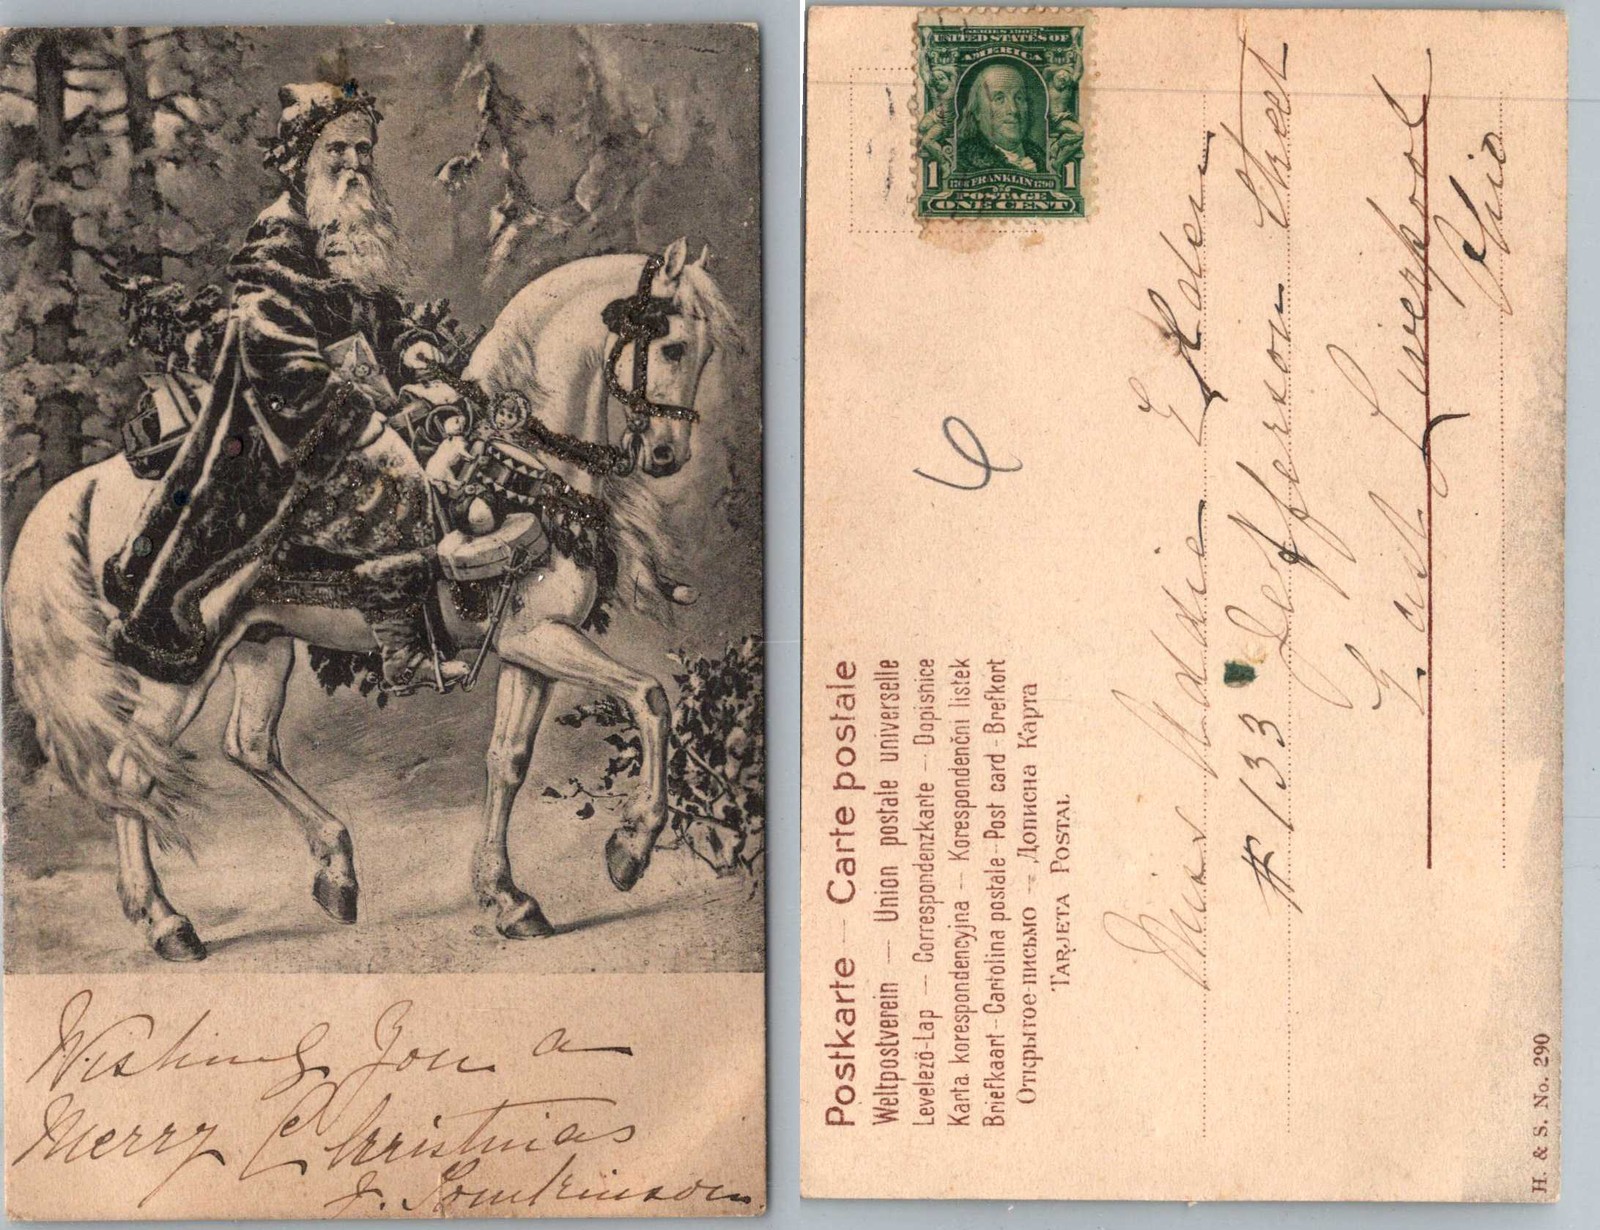 Wishing You a
Merry Christmas
J. Tomkinson
SERIES 1902
UNITED STATES OF
AMERICA
1 1706 FRANKLIN 1790 1
POSTAGE
ONE CENT
6
Postkarte — Carte postale
Weltpostverein — Union postale universelle
Levelező-Lap — Correspondenzkarte — Dopisnice
Karta korespondencyjna — Korespondenční listek
Briefkaart - Cartolina postale - Post card - Brefkort
Открытое-письмо — Дописна Карта
TARJETA POSTAL
Miss Addie
# 133 Jefferson Street
East Liverpool
Ohio
H. & S. No. 290